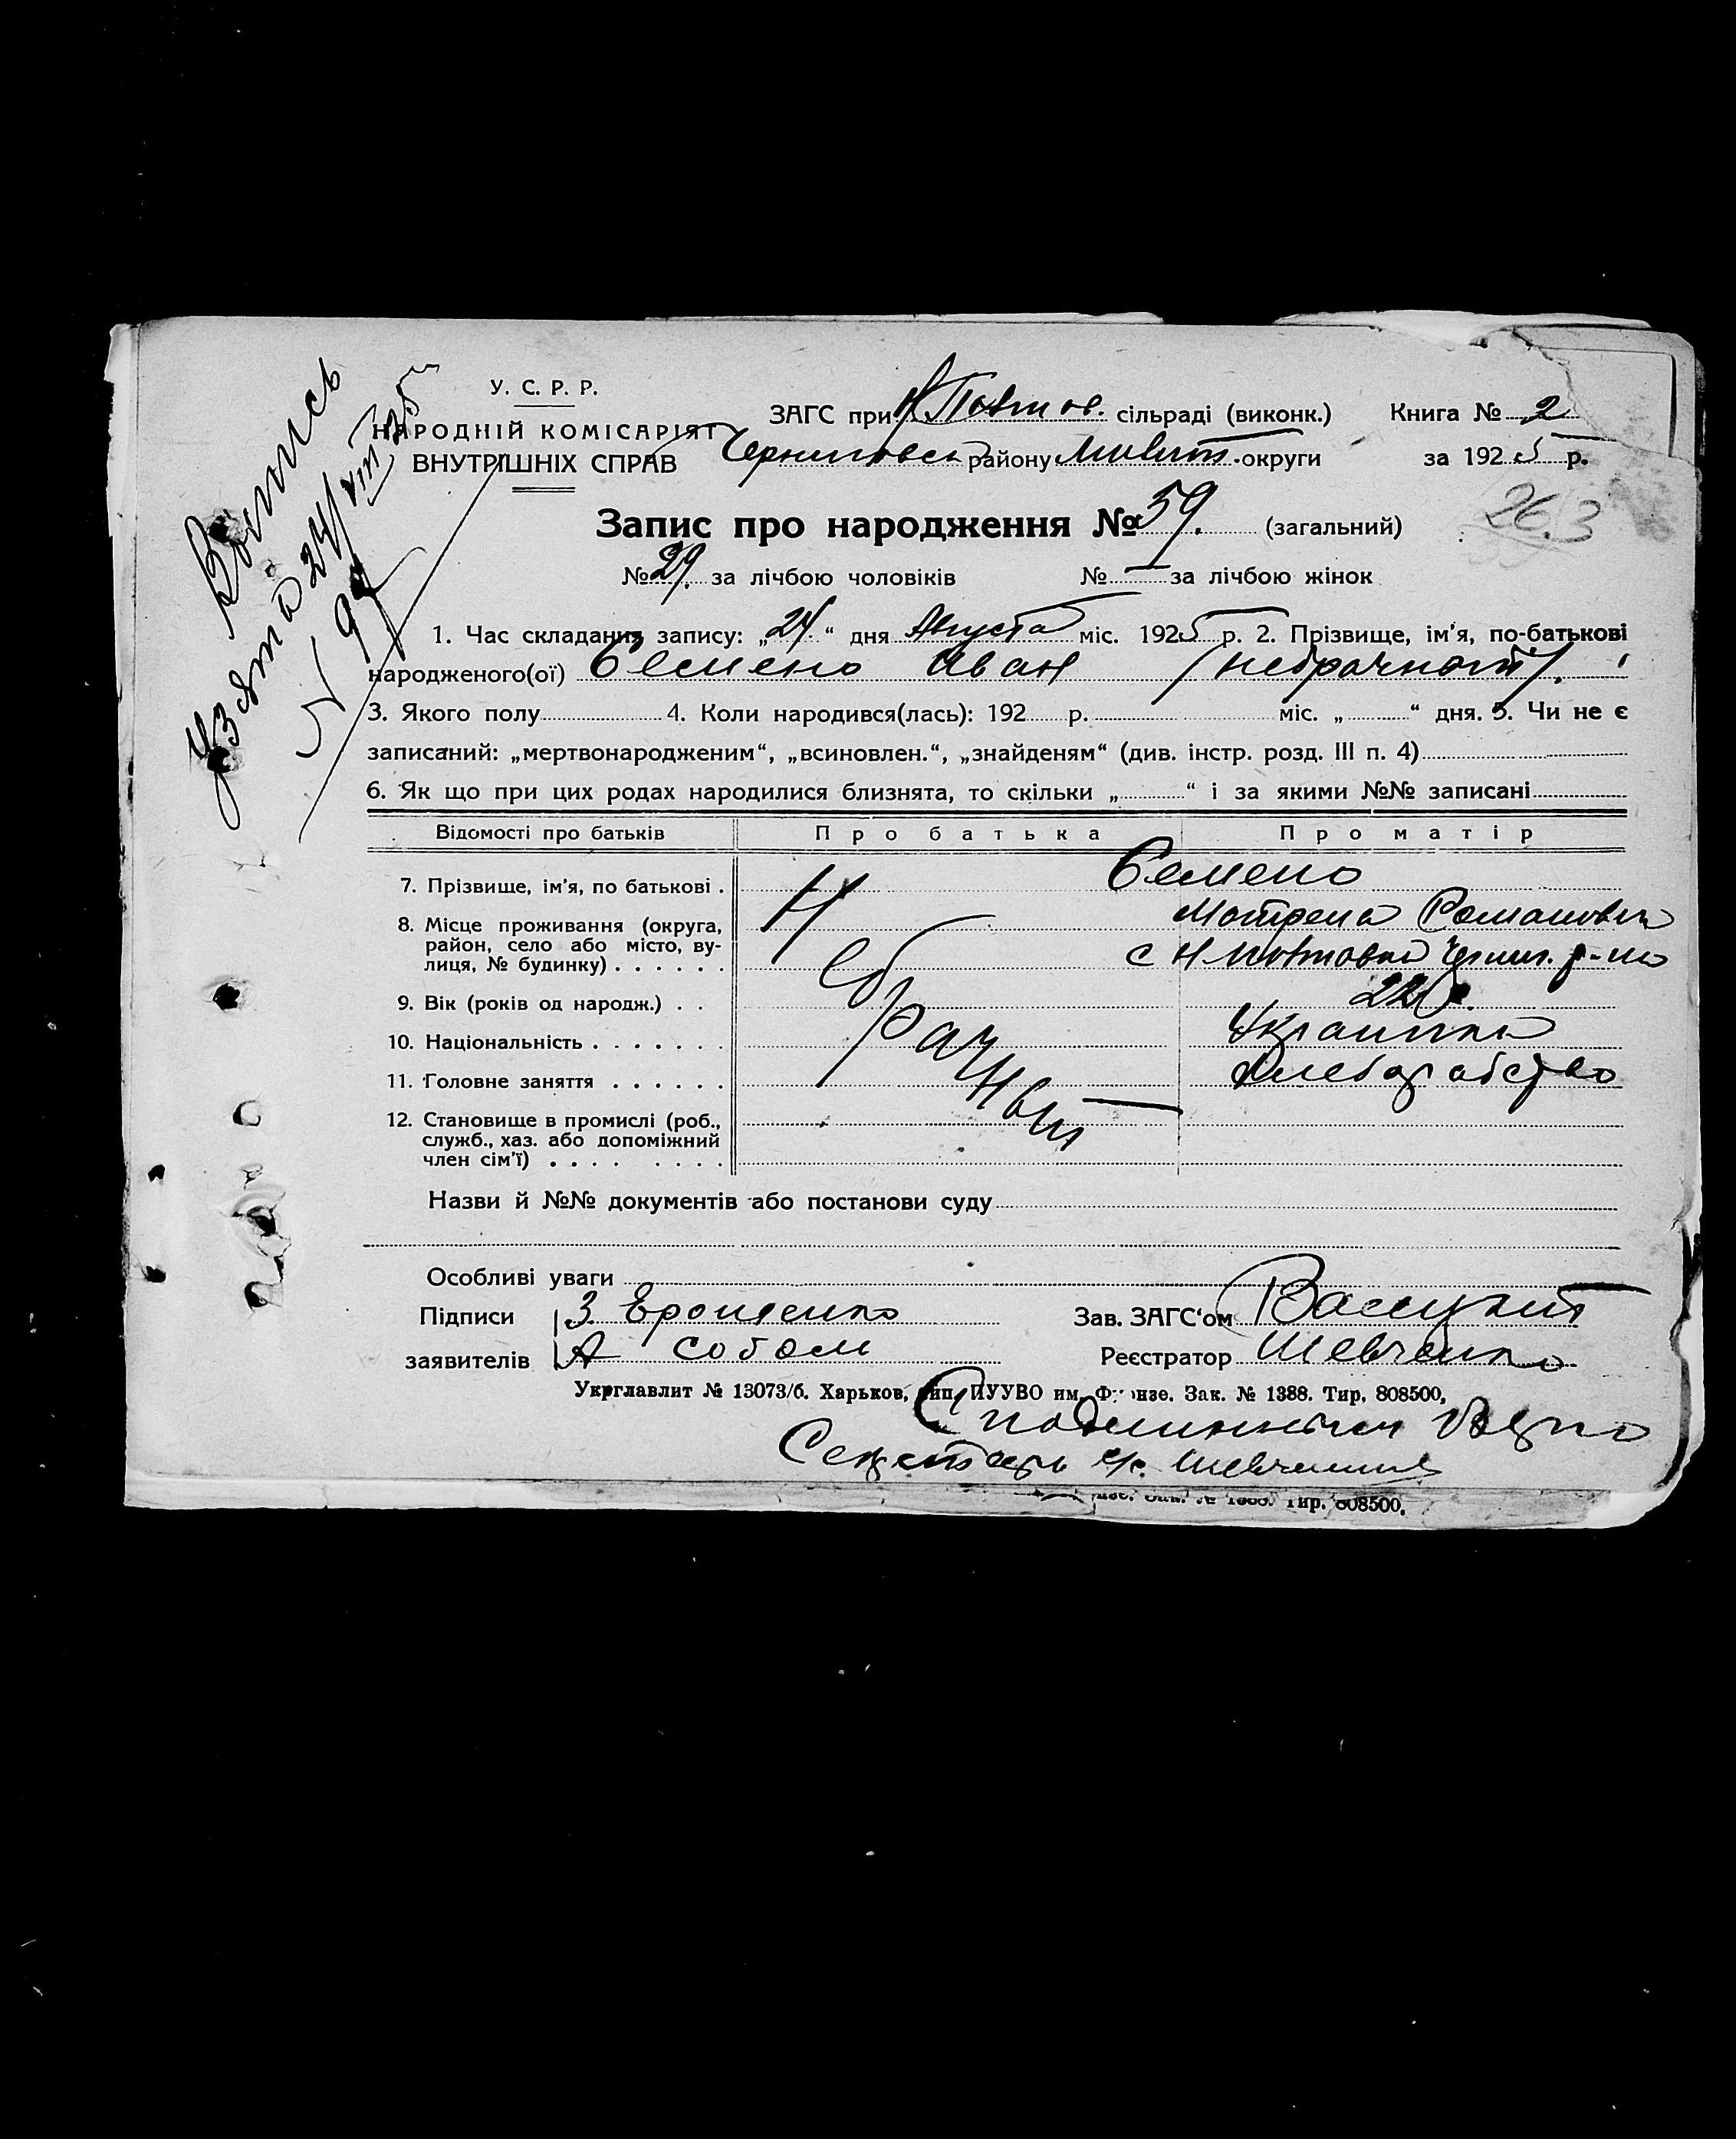 У. С. Р. Р.
НАРОДНІЙ КОМІСАРІЯТ
ВНУТРІШНІХ СПРАВ
ЗАГС при Н Полтов. сільраді (виконк.)
Книга № 2
Черниговск району Мелит. округи
за 1925 р.
Випись
узята 24/VIII 25
№ 94
Запис про народження № 59. (загальний)
26.3
№ 29. за лічбою чоловіків № — за лічбою жінок
1. Час складання запису: „24.“ дня Августа міс. 1925 р. 2. Прізвище, ім’я, по-батькові
народженого(ої) Семено Иван /небрачный/.
3. Якого полу 4. Коли народився(лась): 192 р. міс. „ “ дня. 5. Чи не є
записаний: „мертвонародженим“, „всиновлен.“, „знайденям“ (див. інстр. розд. III п. 4)
6. Як що при цих родах народилися близнята, то скільки „ “ і за якими №№ записані
Відомості про батьків Про батька Про матір
7. Прізвище, ім’я, по батькові . Семено
Мотрена Романовна
8. Місце проживання (округа,
район, село або місто, ву-
лиця, № будинку) . . . . . . с Н Полтовка Черниг. р-на
9. Вік (років од народж.) . . 22
10. Національність . . . . . . . Украинка
11. Головне заняття . . . . . . Хлеборобство
Небрачный
12. Становище в промислі (роб.,
служб., хаз. або допоміжний
член сім’ї) . . . . . . . .
Назви й №№ документів або постанови суду
Особливі уваги
Підписи З. Ерошенко
заявителів А собом
Зав. ЗАГС‘ом
Реєстратор Шевченко
Укрглавлит № 13073/б. Харьков, тип. ПУУВО им. Фрунзе. Зак. № 1388. Тир, 808500,
С подлинным верно
Секретарь с/с. Шевченко
Зак. № 1388. Тир. 808500,